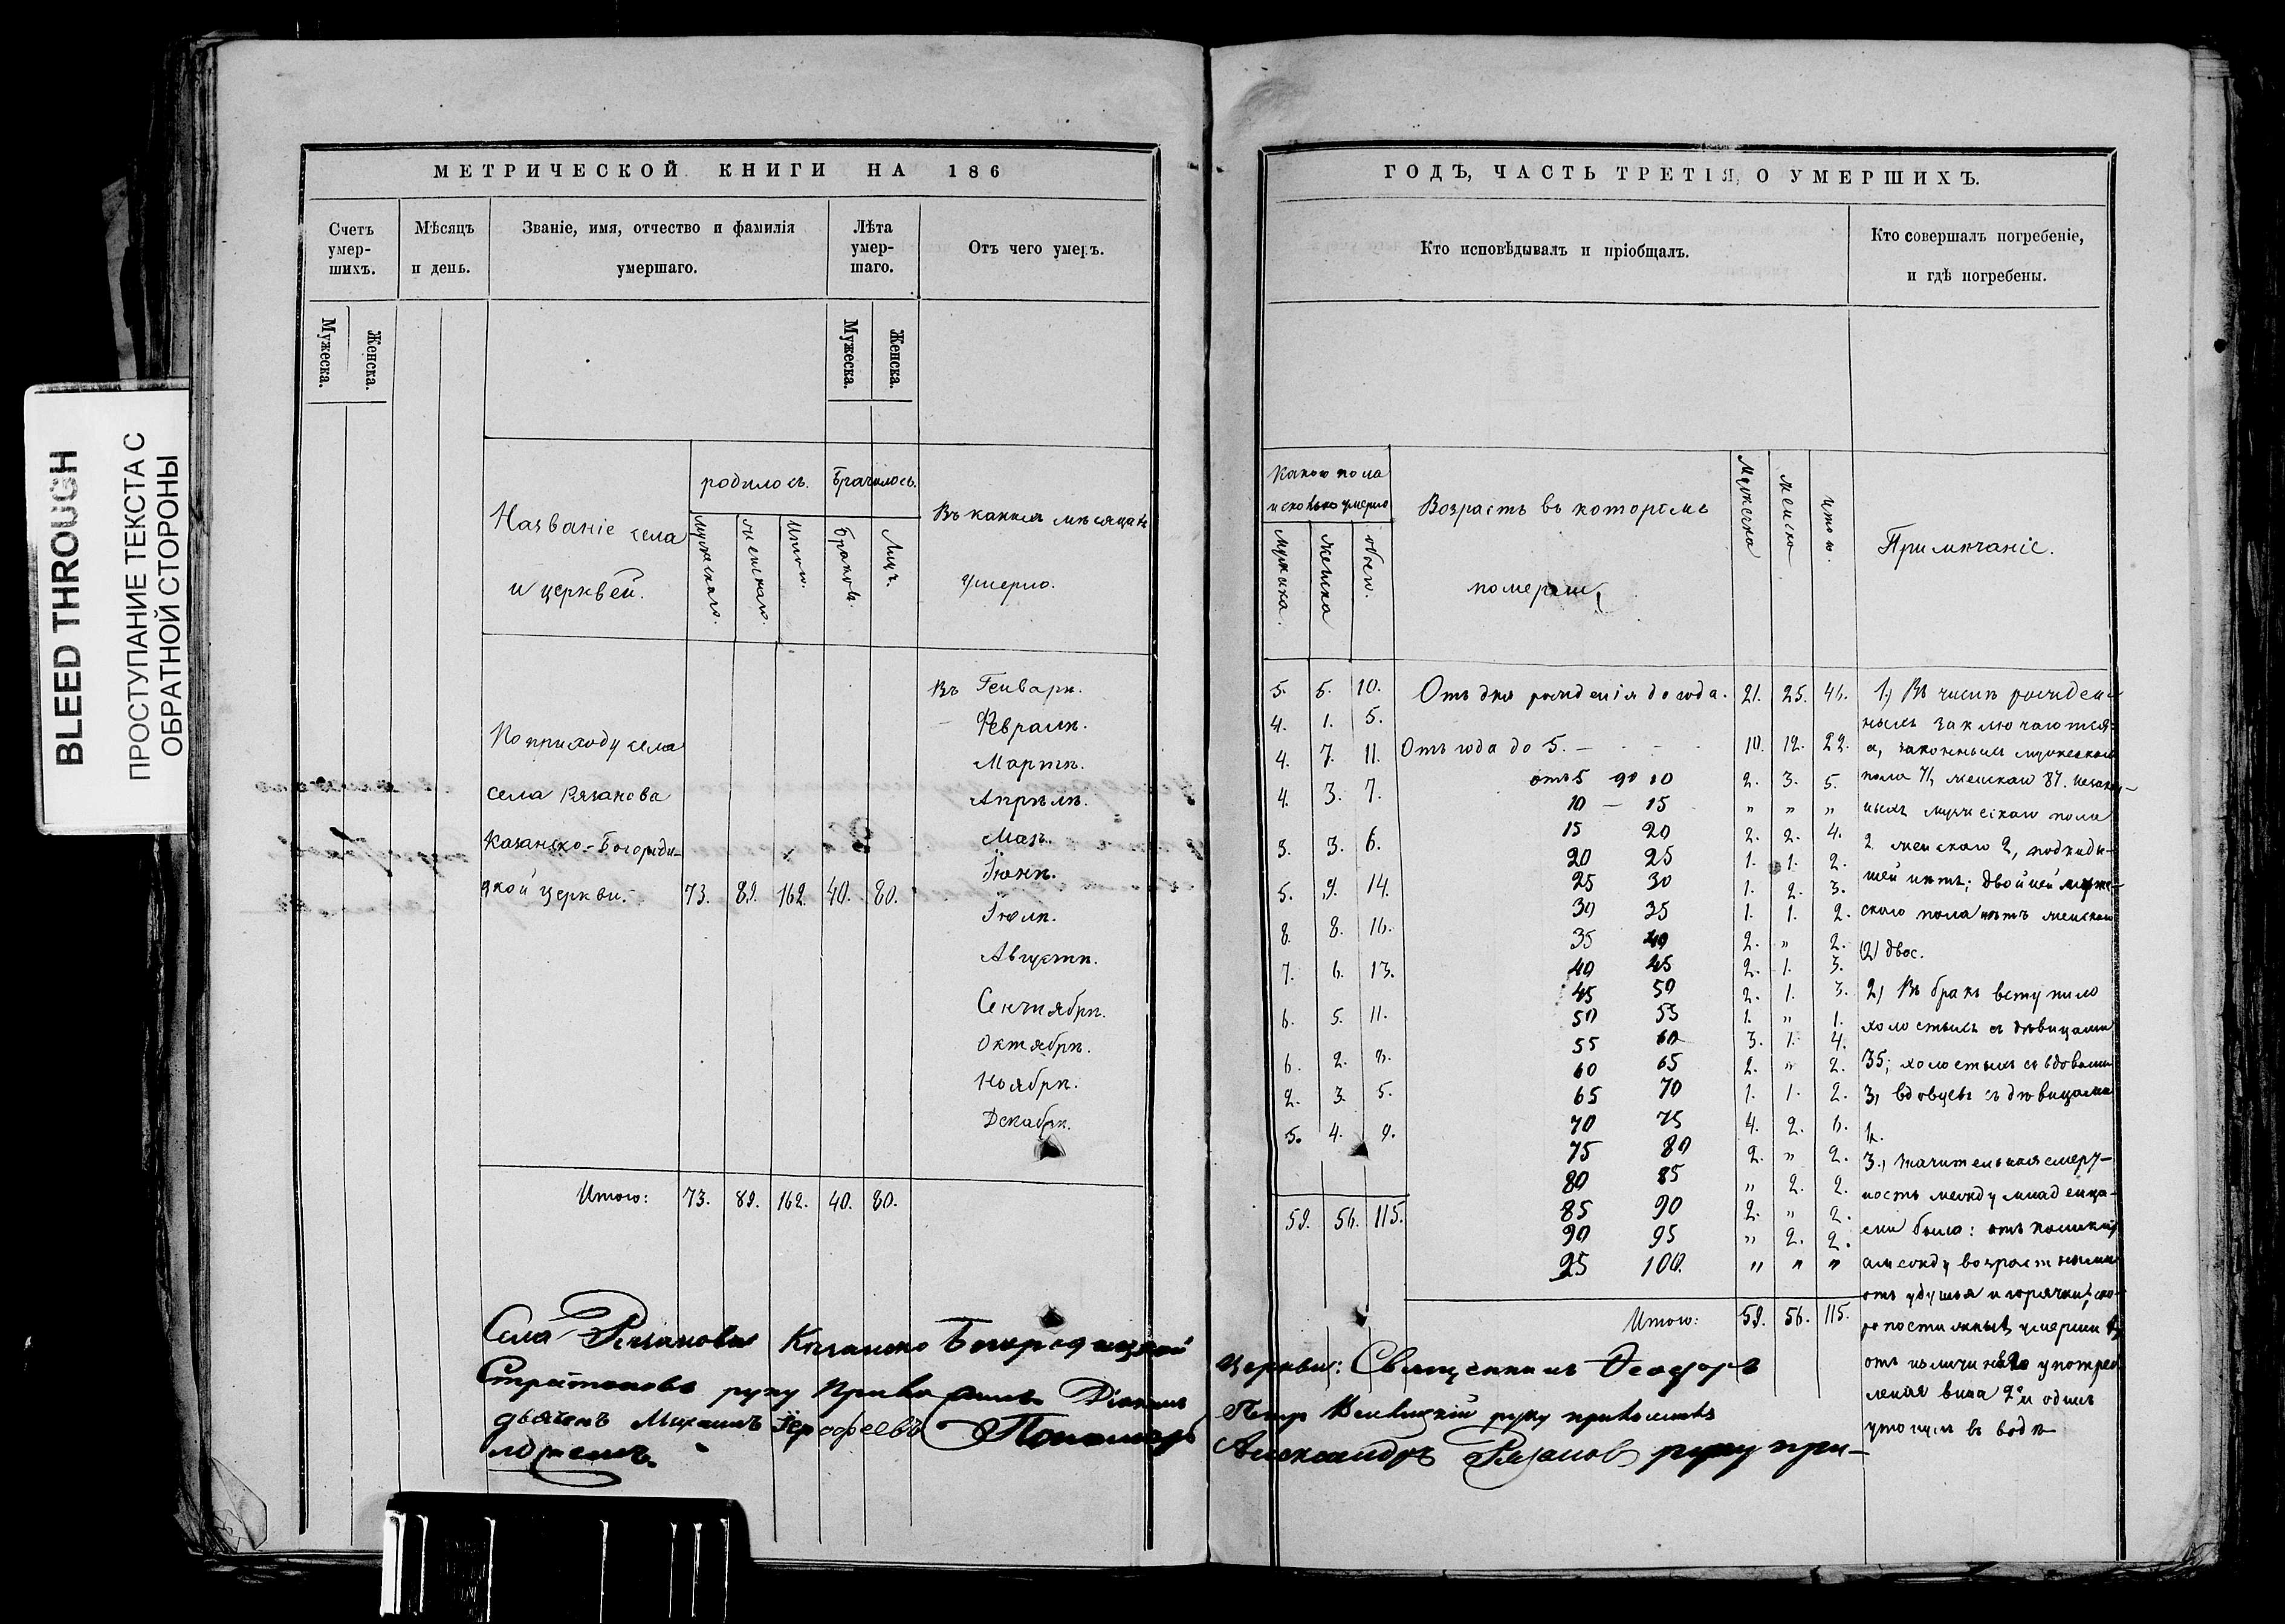 BLEED THROUGH
ПРОСТУПАНИЕ ТЕКСТА С
ОБРАТНОЙ СТОРОНЫ
МЕТРИЧЕСКОЙ КНИГИ НА 186
Счетъ умер-шихъ.
Мѣсяцъ и день.
Званіе, имя, отчество и фамилія
умершаго.
Лѣта умер-шаго.
Отъ чего умеръ.
Мужеска.
Женска.
Мужеска.
Женска.
Названіе села
и церквей.
родилось.
Мужескаго.
женскаго.
Итого.
Брачилось.
Браковъ.
Лицъ.
Въ какихъ мѣсяцахъ
умерло.
По приходу села
села Рязанова
Казанско-Богороди-
цкой церкви. 73. 89. 162. 40. 80.
Въ Генварѣ.
Февралѣ.
Мартѣ.
Апрѣлѣ.
Маѣ.
Іюнѣ.
Іюлѣ.
Августѣ.
Сентябрѣ.
Октябрѣ.
Ноябрѣ.
Декабрѣ.
Итого: 73. 89. 162. 40. 80.
ГОДЪ, ЧАСТЬ ТРЕТІЯ, О УМЕРШИХЪ.
Кто исповѣдывалъ и пріобщалъ.
Кто совершалъ погребеніе,
и гдѣ погребены.
Какого пола
и сколько умерло
Мужеска.
женска
обоего.
Возрастъ въ которомъ
померли
Мужеска
женска
итого.
Примѣчаніе.
5. 5. 10.
4. 1. 5.
4. 7. 11.
4. 3. 7.
3. 3. 6.
5. 9. 14.
8. 8. 16.
7. 6. 13.
6. 5. 11.
6. 2. 8.
2. 3. 5.
5. 4. 9.
59. 56. 115.
Отъ дня рожденія до года. 21. 25. 46.
Отъ года до 5. - - - - 10. 12. 22.
отъ 5 до 10 2. 3. 5.
10 — 15 " " "
15 20 2. 2. 4.
20 25 1. 1. 2.
25 30 1. 2. 3.
30 35 1. 1. 2.
35 40 2. " 2.
40 45 2. 1. 3.
45 50 2. 1. 3.
50 55 1. " 1.
55 60 3. 1. 4.
60 65 2. " 2.
65 70 1. 1. 2.
70 75 4. 2. 6.
75 80 2. " 2.
80 85 " 2. 2.
85 90 2. " 2.
90 95 " 2. 2.
95 100. " " "
Итого: 59. 56. 115.
1) Въ числѣ рожден-
ныхъ заключаются
а, законныхъ мужескаго
пола 71, женскаго 87. незакон-
ныхъ мужескаго пола
2 женскаго 2, подкиды-
шей нѣтъ; двойней муже-
скаго пола нѣтъ женскаго
(2) двос.
2) Въ бракъ вступило
холостыхъ съ дѣвицами
35; холостыхъ съ вдовами
3, вдовцевъ съ дѣвицами
3., Значительная смерт-
ность между младенца-
ми была: отъ
а между возрастными
отъ удушья и горячки; ско-
ропостижныхъ умерши
отъ излишняго употреб-
ленія вина 2 и одинъ
утонулъ въ водѣ
Села Рязанова Казанско Богородицкой Церкви: Священникъ Ѳеодоръ
Стратоновъ руку приложилъ Діаконъ Петръ руку приложилъ
дьячекъ Михаилъ Іерофеевъ Пономарь Александръ Рязановъ руку при-
ложилъ.